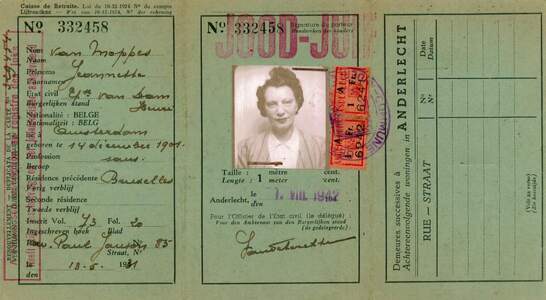 Caisse de Retraite. Loi du 10-12-1924 Nº du compte
Lijfrentkas Wet van 10-12-1924 Nr der rekening
Nº 332458
Nom Van Moppes
Naam
Prénoms Jeannette
Voornamen
Etat civil Van Dam
Burgerlijken stand Henri
Nationalité : BELGE
Nationaliteit : BELG
Né à Amsterdam
Geboren te
le 14 décembre 1901
den
Profession sans
Beroep
Résidence précédente Bruxelles
Vorig verblijf
Seconde résidence
Tweede verblijf
Inscrit Vol. Fol. 20
Ingeschreven boek Blad
Rue Paul Janson 85
Straat, Nº
le
den
Nº 332458
Signature du porteur
JOOD-JUIF
Taille : 1 mètre cent.
Lengte : meter cent.
Anderlecht, le 1. VIII. 1942
den
Pour l'Officier de l'Etat civil (le délégué) :
Voor den Ambtenaar van den Burgerlijken stand
(de gedelegeerde) :
Demeures successives à
Achtereenvolgende woningen in
ANDERLECHT
RUE — STRAAT
Nº
Nº
DATE
Datum